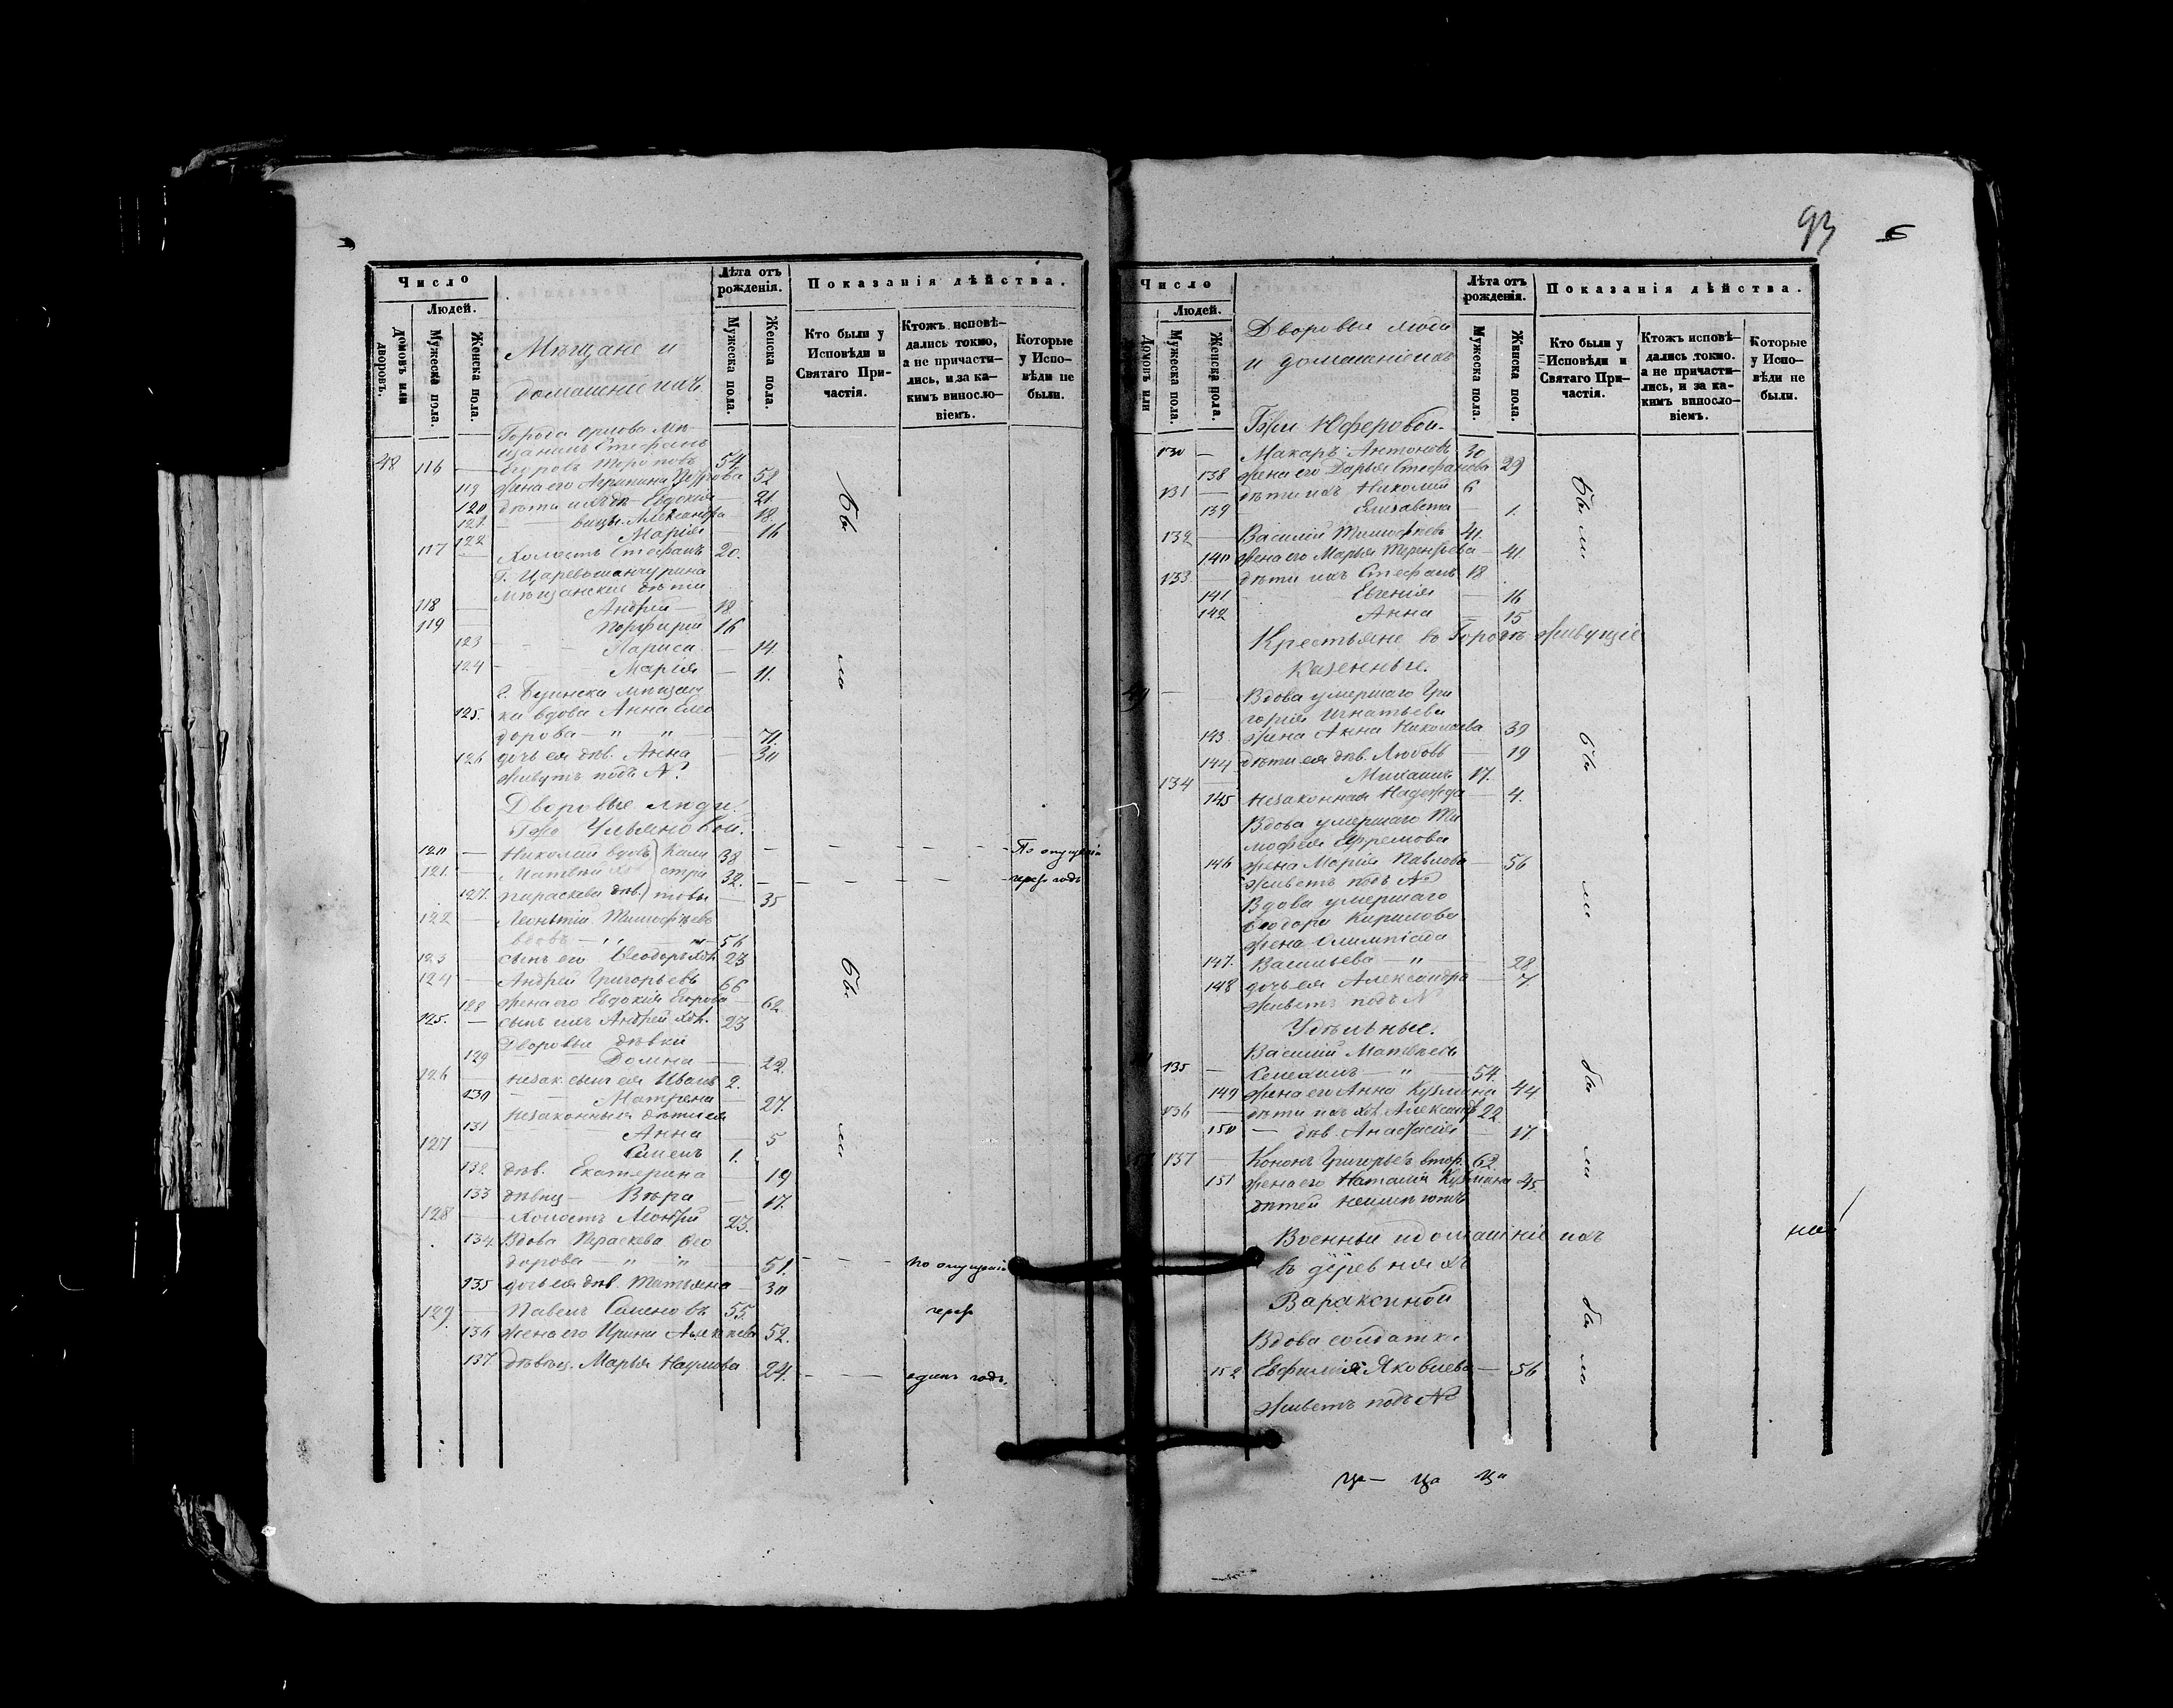 Число
Людей.
Домовъ или дворовъ.
Мужеска пола.
Женска пола.
Мѣщане и
домашніе ихъ
Лѣта отъ рожденія.
Мужеска пола.
Женска пола.
Показанія дѣйства.
Кто были у Исповѣди и Святаго Причастія.
Ктожъ исповѣдались токмо, а не причастились, и за какимъ винословіемъ.
Которые у Исповѣди не были.
Города Орлова мѣ
щанинъ Стефанъ
48 116 — Егоровъ 54
119 жена его Агрипина Петрова 52
120 дѣти ихъ дѣ Евдокія — 21
121 вицы Александра — 18.
122 Марія 16
117 — Холостъ Стефанъ 20.
Г. Царевосанчурина
мѣщанскіе дѣти
118 — Андрей — 18
119 — Порфирій 16
123 Лариса — 14.
124 Марія — 11.
г. Буинска мѣщан
125. ка вдова Анна Ѳео
дорова — " " — 71.
126 дочь ея дѣв. Анна — 30
живутъ подъ №
Дворовые люди.
Гжи Ульяновой.
120 — Николай вдов. Кали 38 — — — — По опущенію
121. — Матвей хо стра 32. — — — — чрезъ годъ
127. Параскева дѣв. товы — 35
122 — Леонтій Тимофѣевъ
вдовъ — " — 56
123 — сынъ его Ѳеодоръ хол. 23
124 — Андрей Григорьевъ 66
128 жена его Евдокія Егорова — 62.
125. — сынъ ихъ Андрей хол. 23
Дворовыя дѣвки
129 Домна — 22.
126 — незак. сынъ ея Иванъ 2.
130 — Матрена — 27.
Незаконныя дѣти ея
131 Анна — 5
127 — Семенъ 1.
132 дѣв. Екатерина — 19
133 дѣвиц — Вѣра — 17.
128 — Холостъ 23.
134 Вдова Параскева Ѳео
дорова — " " — 51. — — по опущенію
135 дочь ея дѣв. Татьяна — 30
129. — Павелъ Семеновъ 55. чрезъ
136 жена его Ирина Алексѣева 52.
137 дѣвиц. Марья Наумова 24. — — одинъ годъ.
бы
ли
бы
ли
93
Число
Людей.
Домовъ или
Мужеска пола.
Женска пола.
Дворовые люди
и домашніе ихъ
Лѣта отъ рожденія.
Мужеска пола.
Женска пола.
Показанія дѣйства.
Кто были у Исповѣди и Святаго Причастія.
Ктожъ исповѣдались токмо. а не причастились, и за какимъ винословіемъ.
Которые у Исповѣди не были.
Гжи Юферовой.
130 — Макаръ Антоновъ 30
138 жена его Дарья Стефанова 29
131 — дѣти ихъ Николай 6
139 Елизавета — 1.
132 — Василій Тимофѣевъ 41.
140 жена его Марья Терентьева — 41.
133 — дѣти ихъ Стефанъ 18
141 Евгенія — 16
142 Анна — 15
Крестьяне въ Городѣ живущіе
Казенные.
49 — Вдова умершаго Гри
горія Игнатьева
143 жена Анна Николаева 39
144 дѣти ея дѣв. Любовь — 19
134 — Михаилъ 17.
145 незаконная Надежда — 4.
Вдова умершаго Ти
мофея Ефремова
146 жена Марія Павлова — 56
живетъ подъ №
Вдова умершаго
Ѳеодора Кирилова
жена Олимпіада
147. Васильева — " — 28
148 дочь ея Александра — 7
живетъ подъ №
Удѣльные.
Василій Матвѣевъ
135 — " — 54.
149 жена его Анна Кузмина 44
136 — дѣти ихъ хол. Александръ 22
150 — дѣв. Анастасія — 17.
137 — Кононъ Григорьевъ втор. 62
151 жена его Наталія Кузмина 45.
дѣтей неимѣютъ
Военные и домашніе ихъ
въ деревняхъ
Вараксиной
Вдова солдатка
152 Евфимія Яковлева — 56
живетъ подъ №
бы ли
бы
ли
бы
ли
бы
ли